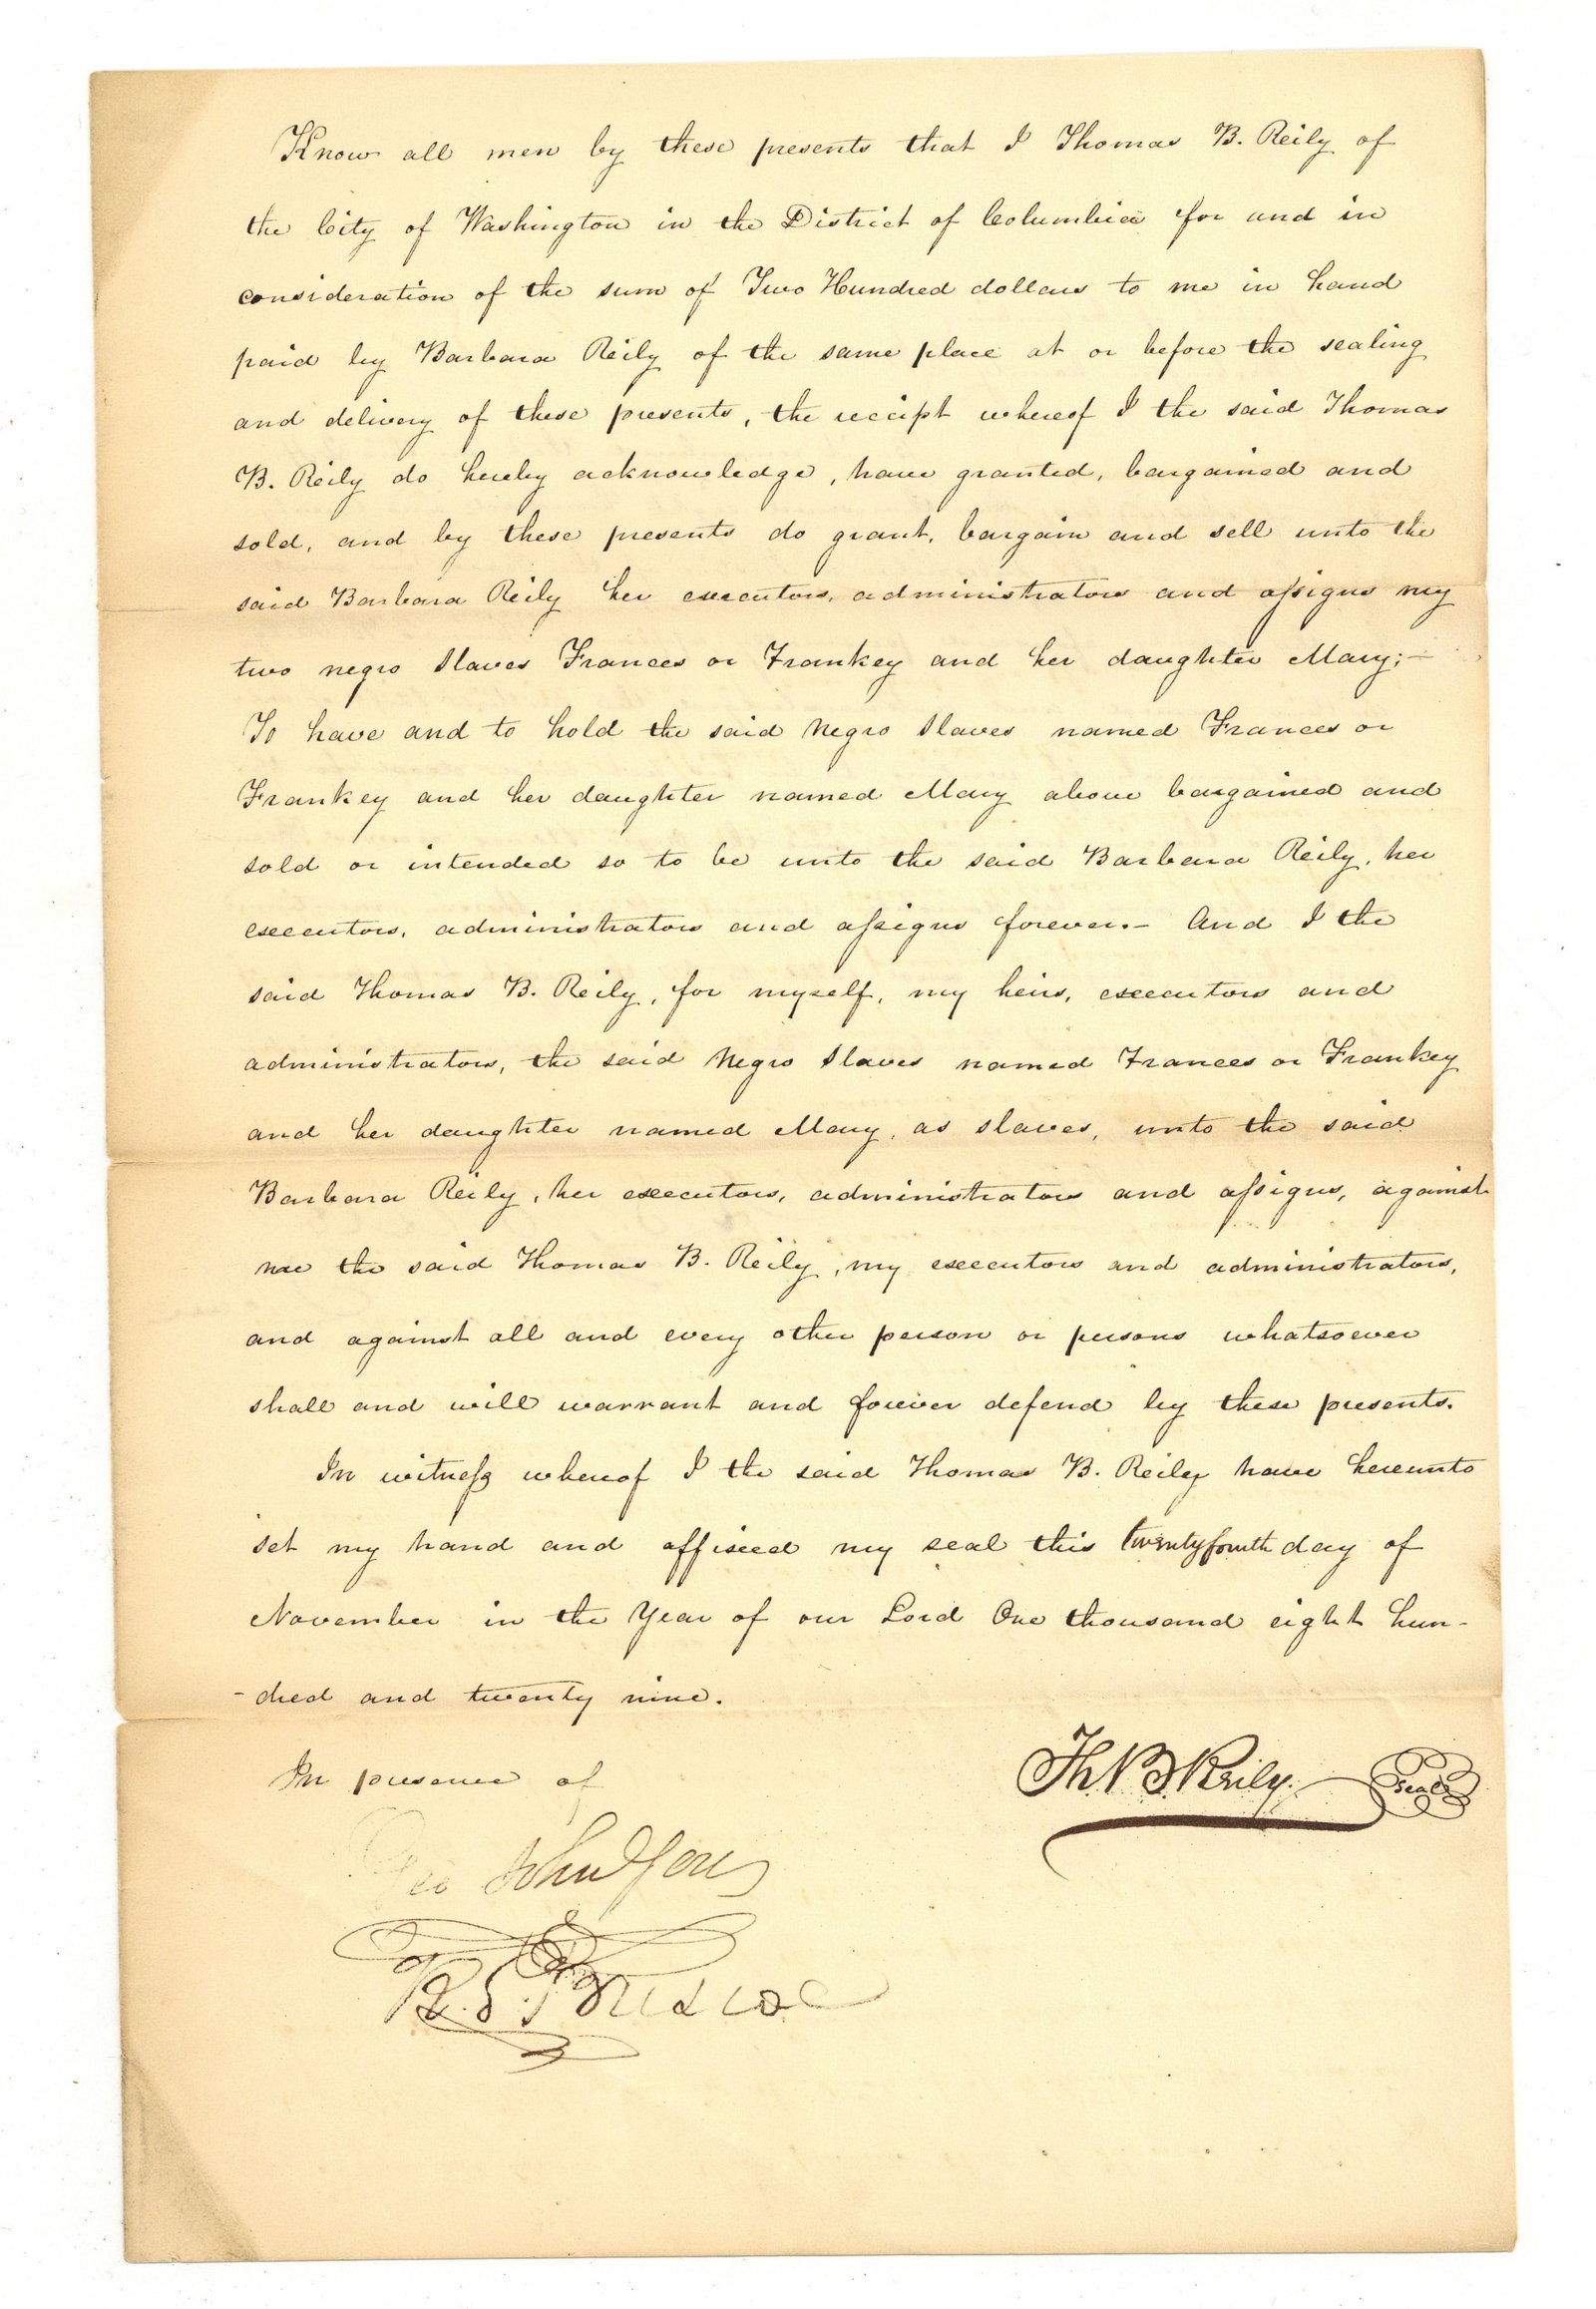 Know all men by these presents that I Thomas B. Reily of
the City of Washington in the District of Columbia for and in
consideration of the sum of Two Hundred dollars to me in hand
paid by Barbara Reily of the same place at or before the sealing
and delivery of these presents, the receipt whereof I the said Thomas
B. Reily do hereby acknowledge, have granted, bargained and
sold, and by these presents do grant, bargain and sell unto the
said Barbara Reily her executors, administrators and assigns my
two negro slaves Frances or Frankey and her daughter Mary;-
To have and to hold the said Negro slaves named Frances or
Frankey and her daughter named Mary above bargained and
sold or intended so to be unto the said Barbara Reily, her
executors, administrators and assigns forever.- And I the
said Thomas B. Reily, for myself, my heirs, executors and
administrators, the said Negro slaves named Frances or Frankey
and her daughter named Mary, as slaves, unto the said
Barbara Reily, her executors, administrators and assigns, against
me the said Thomas B. Reily, my executors and administrators,
and against all and every other person or persons whatsoever
shall and will warrant and forever defend by these presents.
In witness whereof I the said Thomas B. Reily have hereunto
set my hand and affixed my seal this twentyfourth day of
November in the Year of our Lord One thousand eight hun-
-dred and twenty nine.
In presence of
Th. B. Reily. seal
Geo
R. S. Briscoe